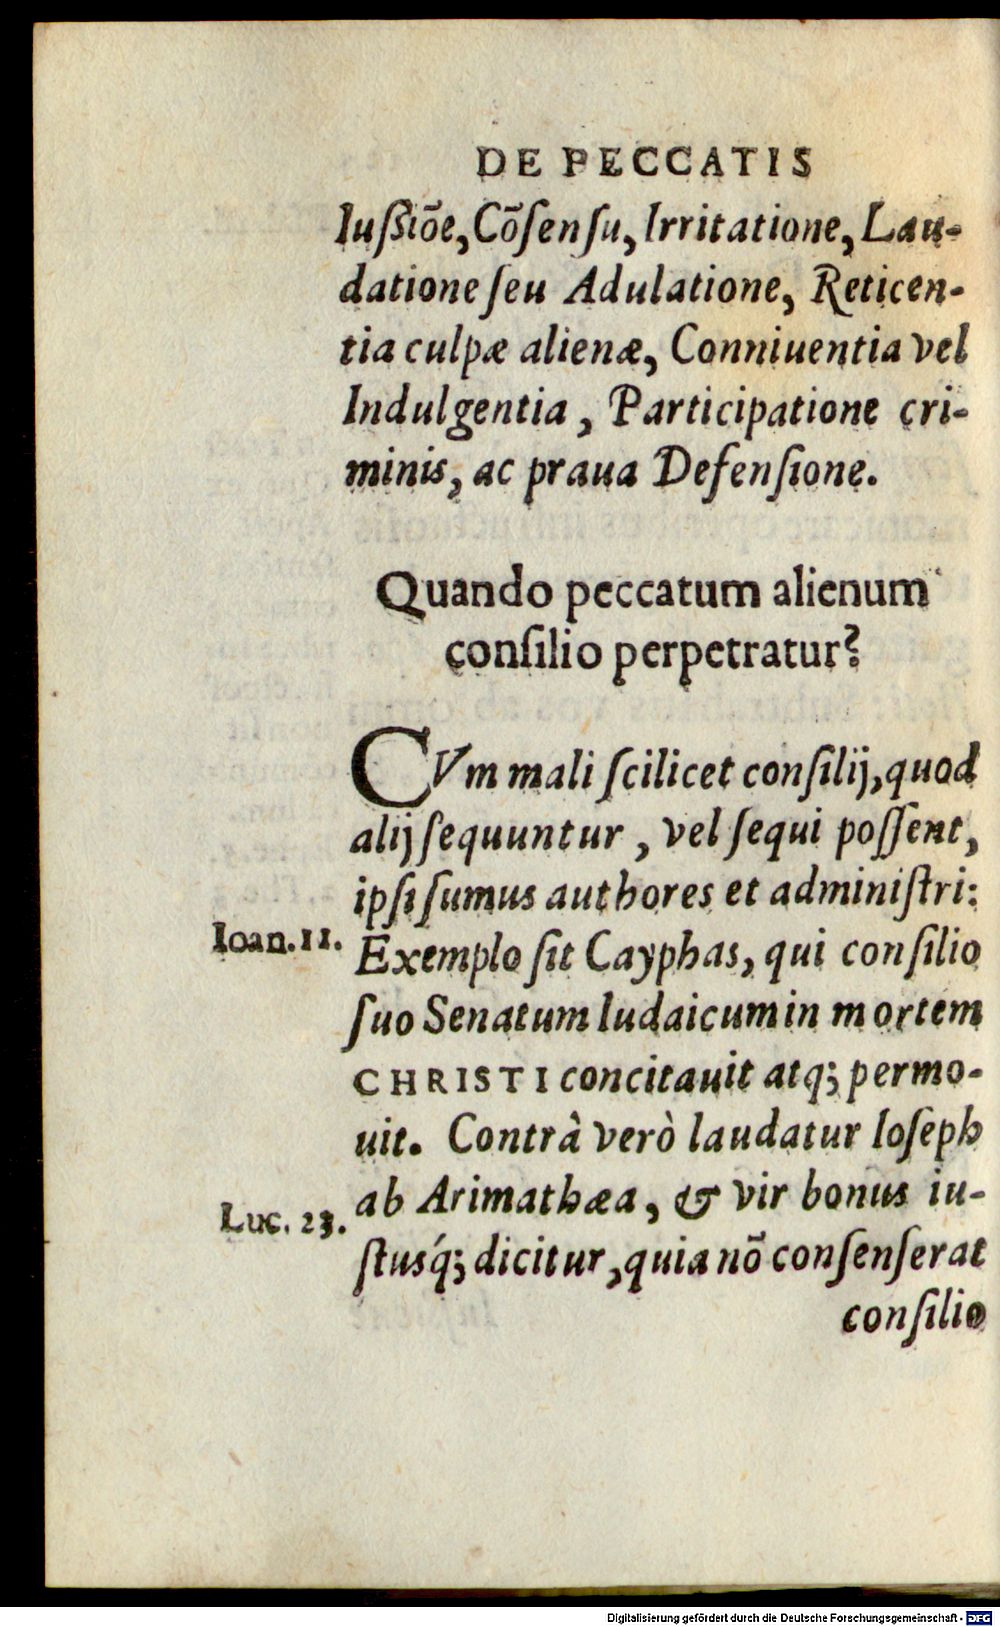 DE PECCATIS
Iuſsiõe, Cõſenſu, Irritatione, Lau-
datione ſeu Adulatione, Reticen-
tia culpæ alienæ, Conniuentia vel
Indulgentia, Participatione cri-
minis, ac praua Defenſione.
Quando peccatum alienum
conſilio perpetratur?
CVm mali ſcilicet conſilij, quod
alij ſequuntur, vel ſequi poſſent,
ipſi ſumus authores et adminiſtri:
Ioan. 11.
Exemplo ſit Cayphas, qui conſilio
ſuo Senatum Iudaicum in mortem
CHRISTI concitauit atq; permo-
uit. Contrà verò laudatur Ioſeph
ab Arimathæa, & vir bonus iu-
Luc. 23.
ſtusq́; dicitur, quia nõ conſenſerat
conſilio
Digitalisierung gefördert durch die Deutsche Forschungsgemeinschaft - DFG